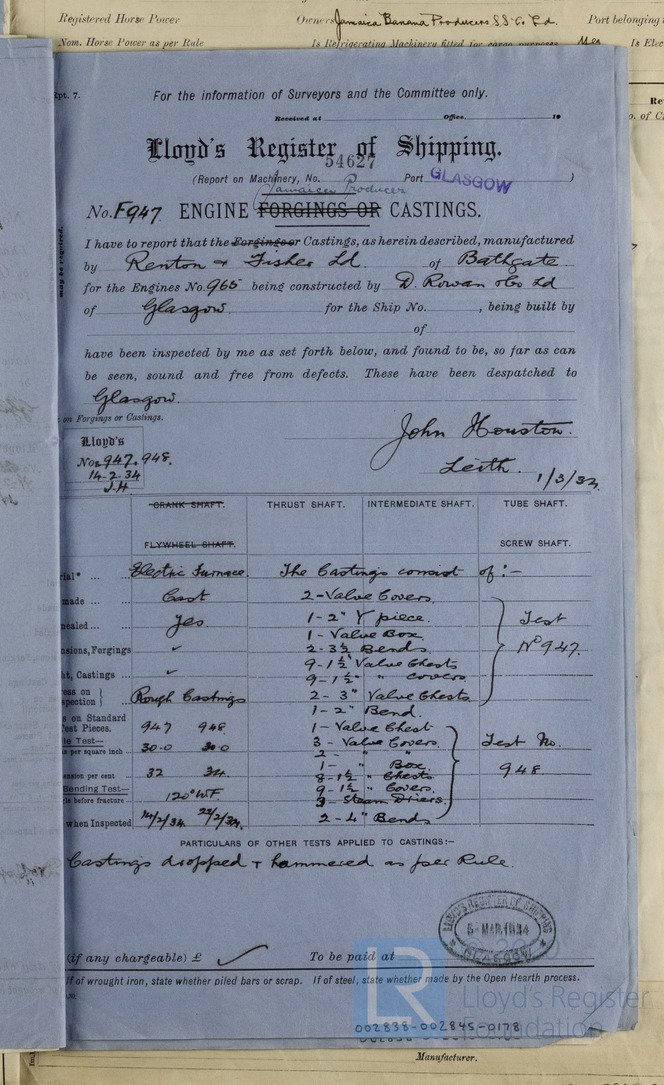 Registered Horse Power
Owners Jamaica Banana Producers S.S. Co. Ld.
Port belonging
Nom. Horse Power as per Rule
Is Refrigerating Machinery fitted for cargo purposes Yes
Is Elec
Rpt. 7.
For the information of Surveyors and the Committee only.
Received at Office, 19
Lloyd's Register of Shipping.
54627
(Report on Machinery, No. Port GLASGOW )
Jamaica Producer
No. F947 ENGINE FORGINGS OR CASTINGS.
may be required.
I have to report that the Forgings or Castings, as herein described, manufactured
by Renton & Fisher Ld. of Bathgate
for the Engines No. 965 being constructed by D. Rowan & Co Ld
of Glasgow. for the Ship No. , being built by
of
have been inspected by me as set forth below, and found to be, so far as can
be seen, sound and free from defects. These have been despatched to
Glasgow.
on Forgings or Castings.
John Houston.
Lloyd's
Nos 947. 948.
14-2-34
J.H
Leith.
1/3/34
CRANK SHAFT. THRUST SHAFT. INTERMEDIATE SHAFT. TUBE SHAFT.
FLYWHEEL SHAFT. SCREW SHAFT.
rial* ... ... Electric Furnace The Castings consist of :-
made ... ... Cast 2-Valve Covers.
nealed ... ... Yes. 1-2" Y piece. Test
1- Valve Box
nsions, Forgings ✓ 2-3½ Bends. No 947.
9-1½" Valve Chests
ht, Castings ... ✓ 9-1½" " covers.
ess on
spection } Rough Castings 2-3" Valve Chests.
1-2" Bend.
s on Standard
est Pieces. 947 948 1-Valve Chest
le Test—
s per square inch ... 30.0 30.0 3-Valve Covers. Test No.
2- " "
1- " Box.
ension per cent 32 34. 8-1½ " Chests 948.
Bending Test—
le before fracture 120° WF. 9-1½ " Covers.
3-Steam Driers.
when Inspected 14/2/34 22/2/34. 2-4" Bends
PARTICULARS OF OTHER TESTS APPLIED TO CASTINGS:—
Castings dropped & hammered as per Rule.
LLOYD'S REGISTER OF SHIPPING
5-MAR 1934
GLASGOW
(if any chargeable) £ ✓ To be paid at
If of wrought iron, state whether piled bars or scrap. If of steel, state whether made by the Open Hearth process.
LR
Lloyd's Register
Foundation
002838-002845-0178
Manufacturer.